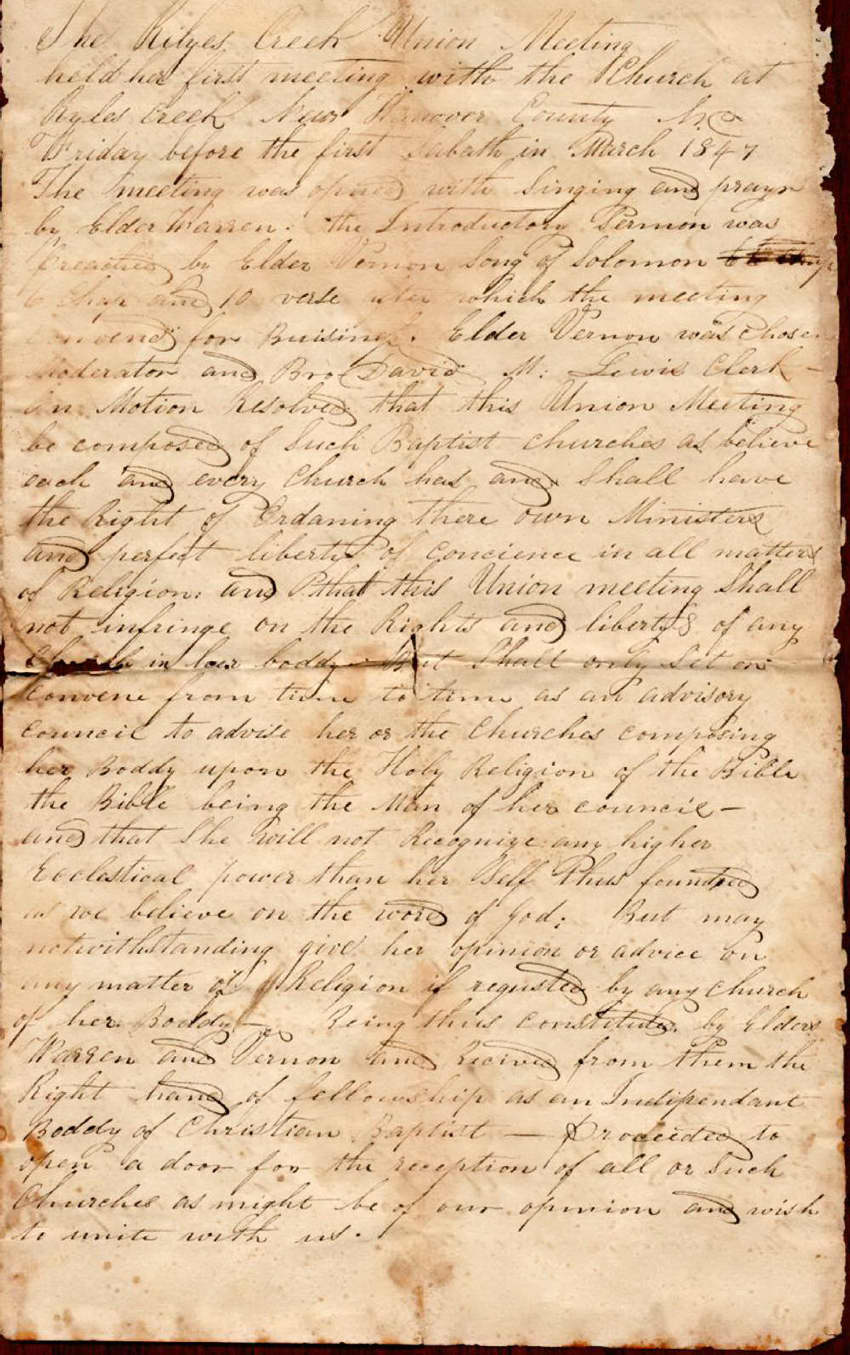 The Rilyes Creek Union Meeting
held her first meeting with the Church at
Ryles Creek New Hanover County N. C
Friday before the first Sabath in March 1847
The meeting was opened with Singing and prayr
by Elder Warren. the Introductory Sermon was
Preached by Elder Vernon Song of Solomon
6 Chap and 10 verse after which the meeting
for Buisiness. Elder Vernon was Chosen
Moderator and Bro David M. Lewis Clerk –
On Motion Resolved that this Union Meeting
be composed of Such Baptist Churches as believe
each and every Church has and Shall have
the Right of Ordaning there own Ministers
and perfect libertys of Concience in all matters
of Religion, and that this Union meeting Shall
not infringe on the Rights and libertys of any
Church in boddy – But Shall only Sit or
Convene from time to time as an advisory
Council to advise her or the Churches composing
her Boddy upon the Holy Religion of the Bible
the Bible being the Man of her council –
and that She will not Recognize any higher
Ecclestical power than her Self Thus founded
as we believe on the word of God; But may
notwithstanding give her opinion or advice on
any matter of Religion if requsted by any Church
of her Boddy – Being thus constituted by Elders
Warren and Vernon and Received from them the
Right hand of fellowship as an Indipendant
Boddy of Christian Baptist – Proceided to
open a door for the reception of all or Such
Churches as might be of our opinion and wish
to unite with us.